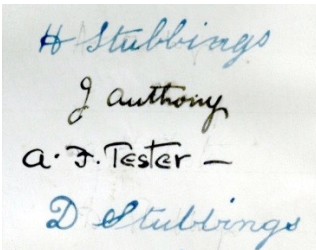 H Stubbings
J Anthony
A. F. Tester –
D Stubbings